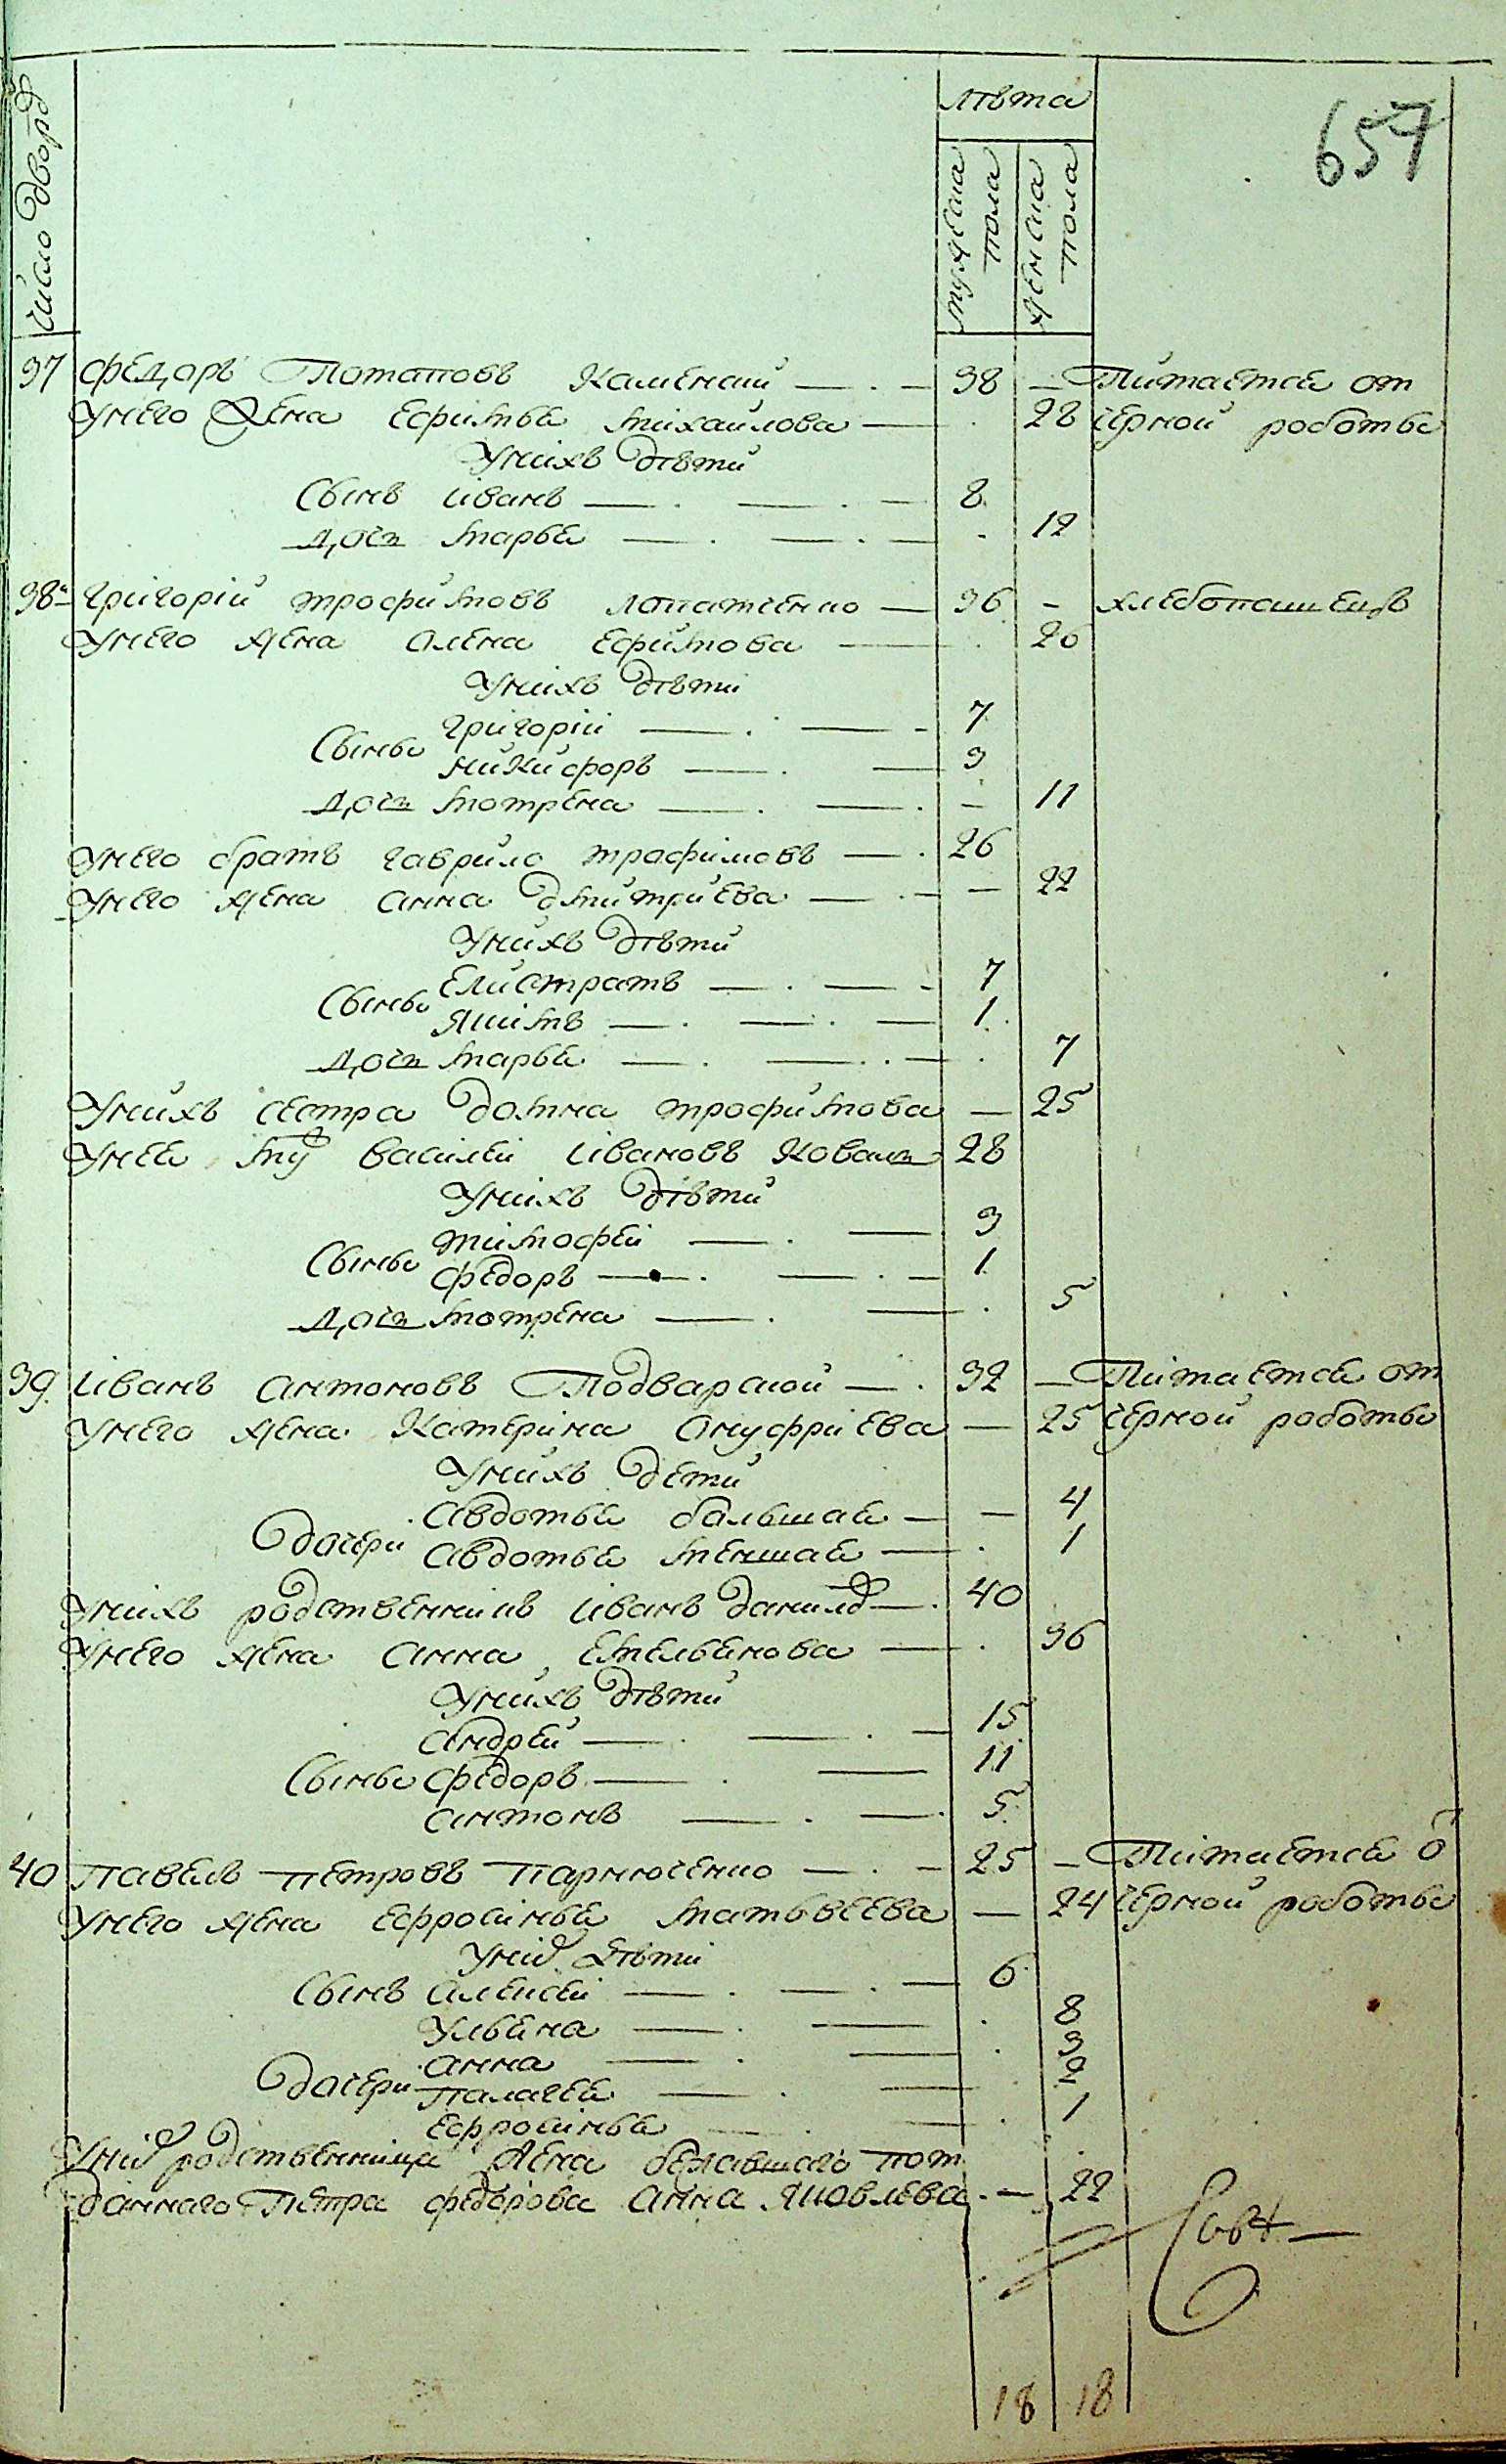 657
число дворовъ
лѣта
мужеска пола
женска пола
37 Федоръ Потаповъ Каменский 38 — Питается от
У него жена Ефимья Михайлова 28 черной роботы
У нихъ дѣти
Сынъ Иванъ 8
дочь Марья 12
38 Григорій Трофимовъ Лопатченко 36 — хлебопашецъ
У него жена Олена Ефимова 26
У нихъ дѣти
Сыны Григорій 7
Никифоръ 3
дочь Мотрена 11
У него братъ Гаврило Трофимовъ 26
У него жена Анна Дмитриева — 22
У нихъ дѣти
Сыны Елистратъ 7
Якимъ 1
дочь Марья 7
У нихъ сестра Домна Трофимова — 25
У нее му Василей Ивановъ Коваль 28
У нихъ дѣти
Сыны Тимофей 3
Федоръ 1
дочь Мотрена 5
39 Иванъ Антоновъ Подварской 32 — Питается от
У него жена Катерина Онуфриева — 25 черной роботы
У нихъ дети
дочери Авдотья большая — 4
Авдотья меншая 1
У нихъ родственникъ Иванъ Данило 40
У него жена Анна Емельянова 36
У нихъ дѣти
Андрей 15
Сыны Федоръ 11
Антонъ 5
40 Павелъ Петровъ Пархоченко 25 — Питается о
У него жена Ефросинья Матьвеева — 24 черной роботы
У них дѣти
Сынъ Алексей 6
Ульяна 8
Анна 3
дочери Палагея 2
Ефросинья 1
У них родственница жена бежавшаго пот
данного Петра Федорова Анна Яковлева — 22
18 18